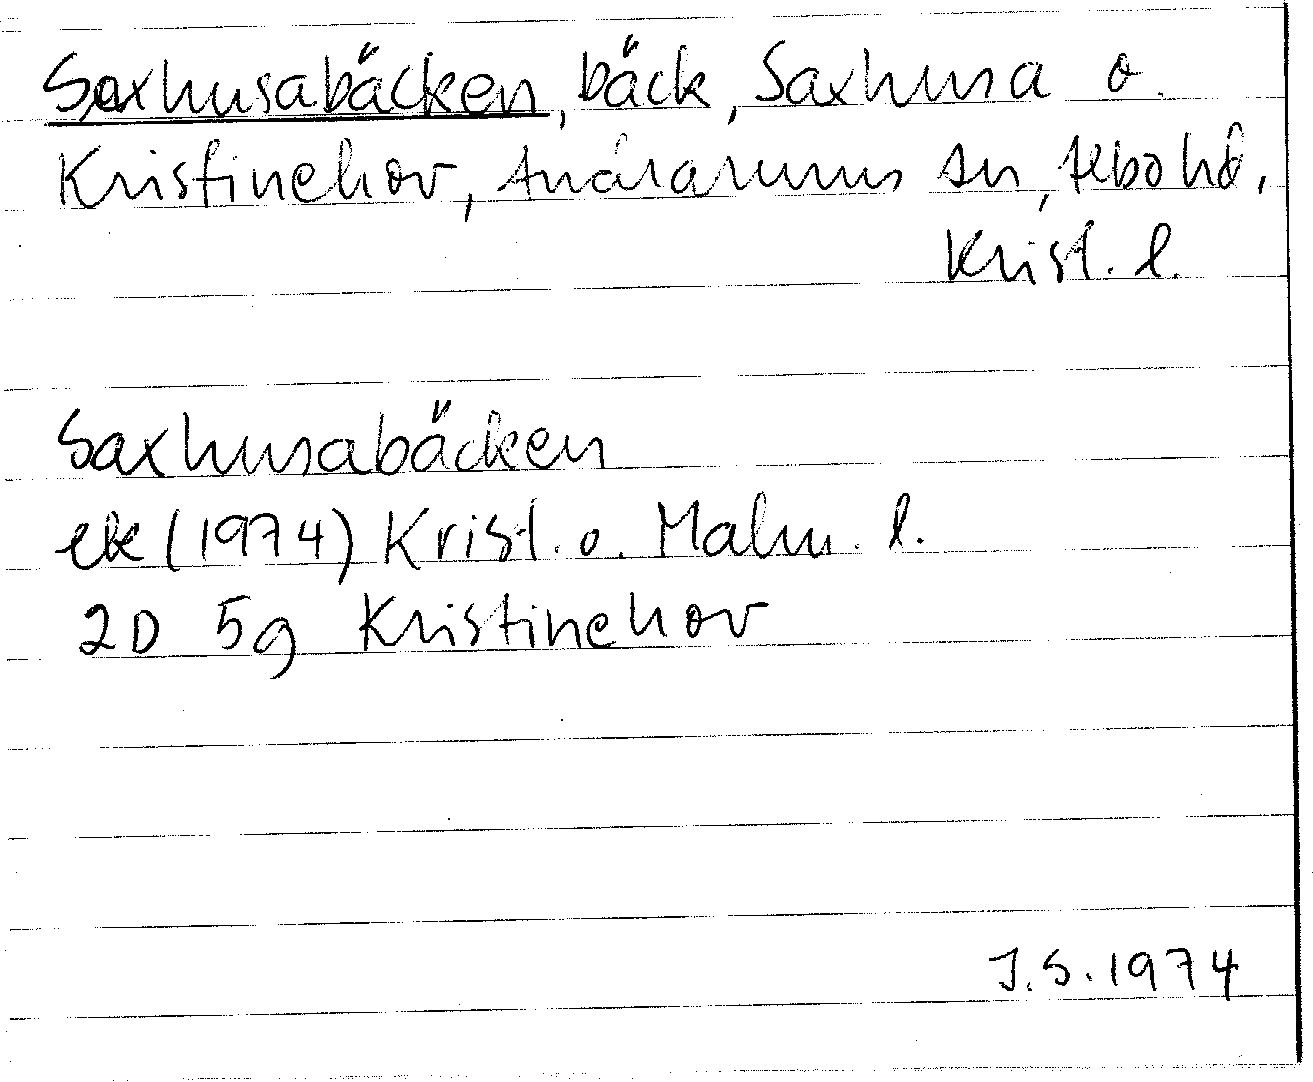 Saxhusabäcken, bäck, Saxhusa o.
Kristinehov, Andrarums sn, Albo hd,
Krist. l.
Saxhusabäcken
ek (1974) Krist. o. Malm. l.
2D 5g Kristinehov
J.S. 1974